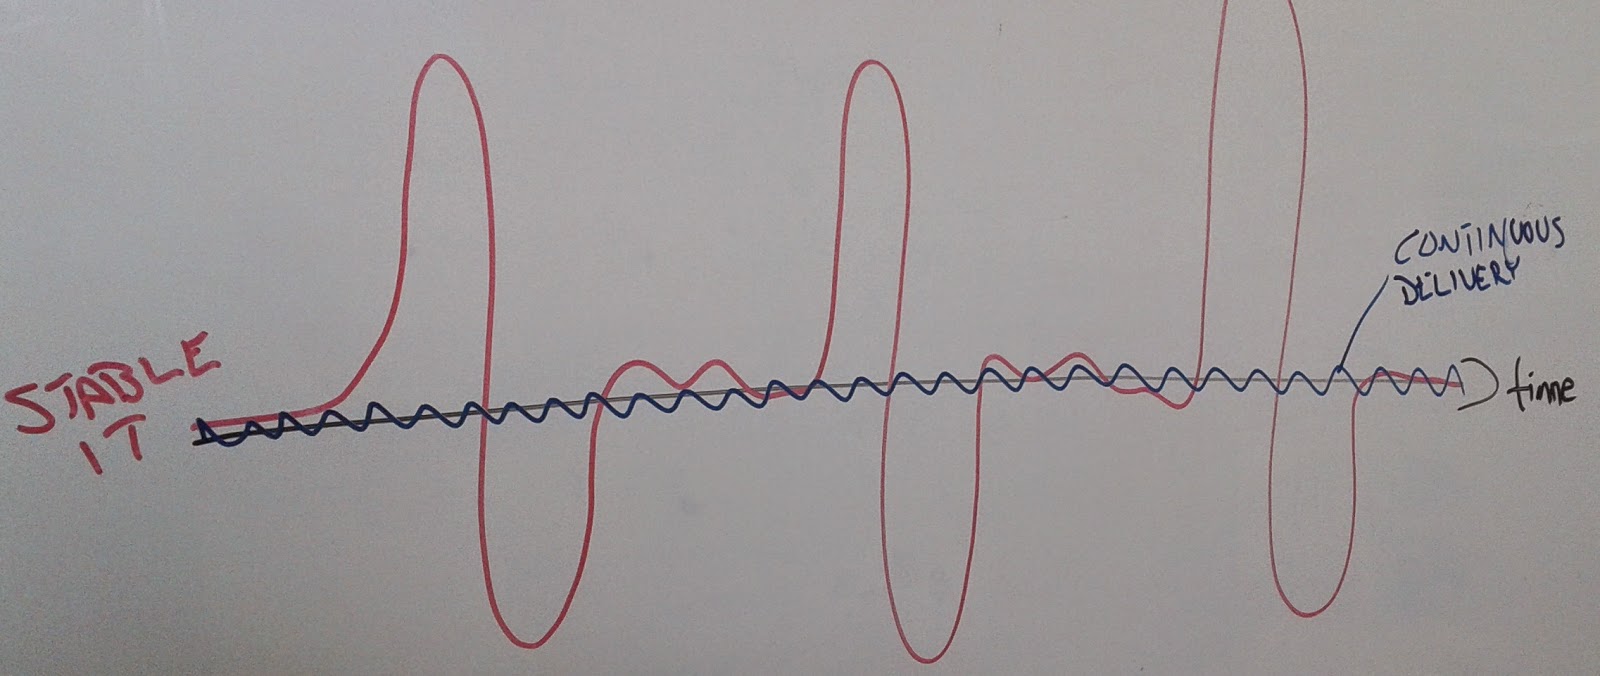 STABLE
IT
CONTINUOUS
DELIVERY
time